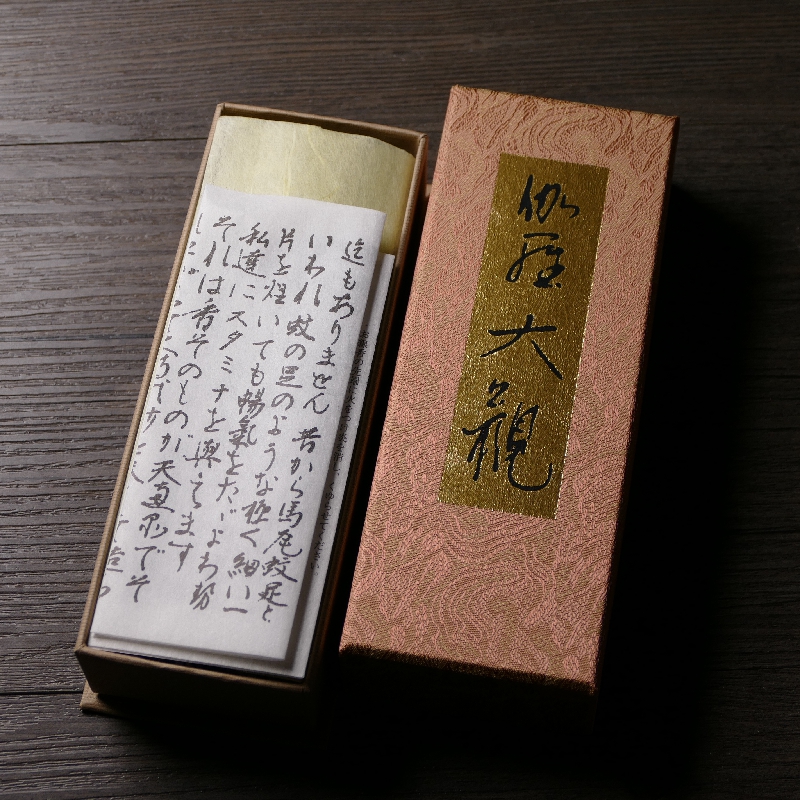 伽羅大観
迄もありません 昔から馬尾蚊足と
いわれ 蚊の足のような極く細い一
片を炷いても暢氣をたゞよわ勢
私達にスタミナを與えてます
それは香そのものが天でそ